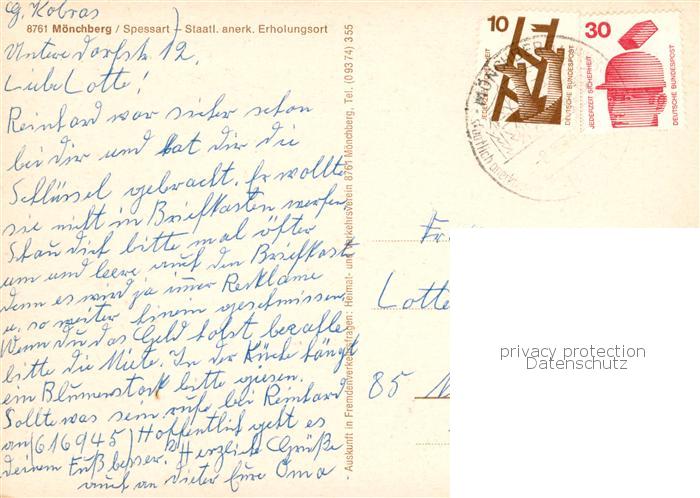 G. Kobras
8761 Mönchberg / Spessart – Staatl. anerk. Erholungsort
Untere Dorfstr. 12.
Liebe Lotte!
Reinhard war sicher schon
bei dir und hat dir die
Schlüssel gebracht. Er wollte
sie nicht in Briefkasten werfen
Schau dich bitte mal öfter
um und leere auch den Briefkast
denn es wird ja imer Recklame
u. so weiter hinein geschmissen
Wenn du das Geld holst, bezahle
bitte die Miete. In der Küche hängt
ein Blumenstock bitte giesen.
Sollte was sein rufe bei Reinhard
an (616945) Hoffentlich geht es
deinem Fuß besser. Herzliche Grüße
auch an dieter Eure Oma
Auskunft in Fremdenverkehrsfragen: Heimat- und Verkehrsverein 8761 Mönchberg, Tel. (09374) 355
10
JEDERZEIT SICHERHEIT
DEUTSCHE BUNDESPOST
30
JEDERZEIT SICHERHEIT
DEUTSCHE BUNDESPOST
Lotte
85
privacy protection
Datenschutz